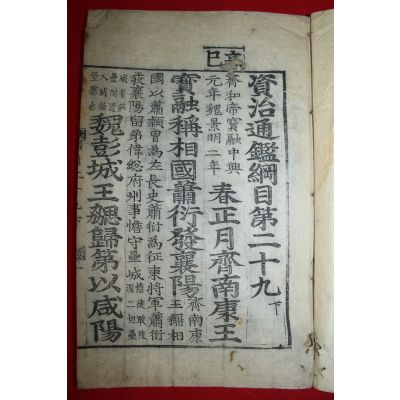 資治通鑑綱目第二十九下
辛巳
齊和帝寶融中興
元年魏景明二年
春正月齊南康王
寶融稱相國蕭衍發襄陽
齊南康
王稱相
國以蕭穎胄為左長史蕭衍為征東將軍蕭衍
發襄陽留弟偉總府州事憺守壘城
憺徒敢徒
濫二切壘
魏彭城王勰歸第以咸陽